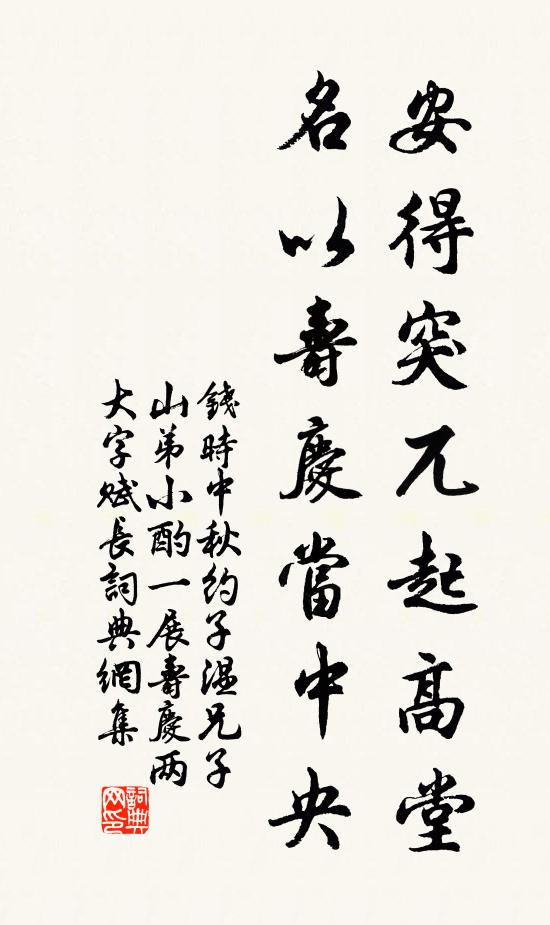 安得突兀起高堂
名以壽慶當中央
錢時中秋約子溫兄子
山弟小酌一展壽慶两
大字賦長詞典網集
詞典网印